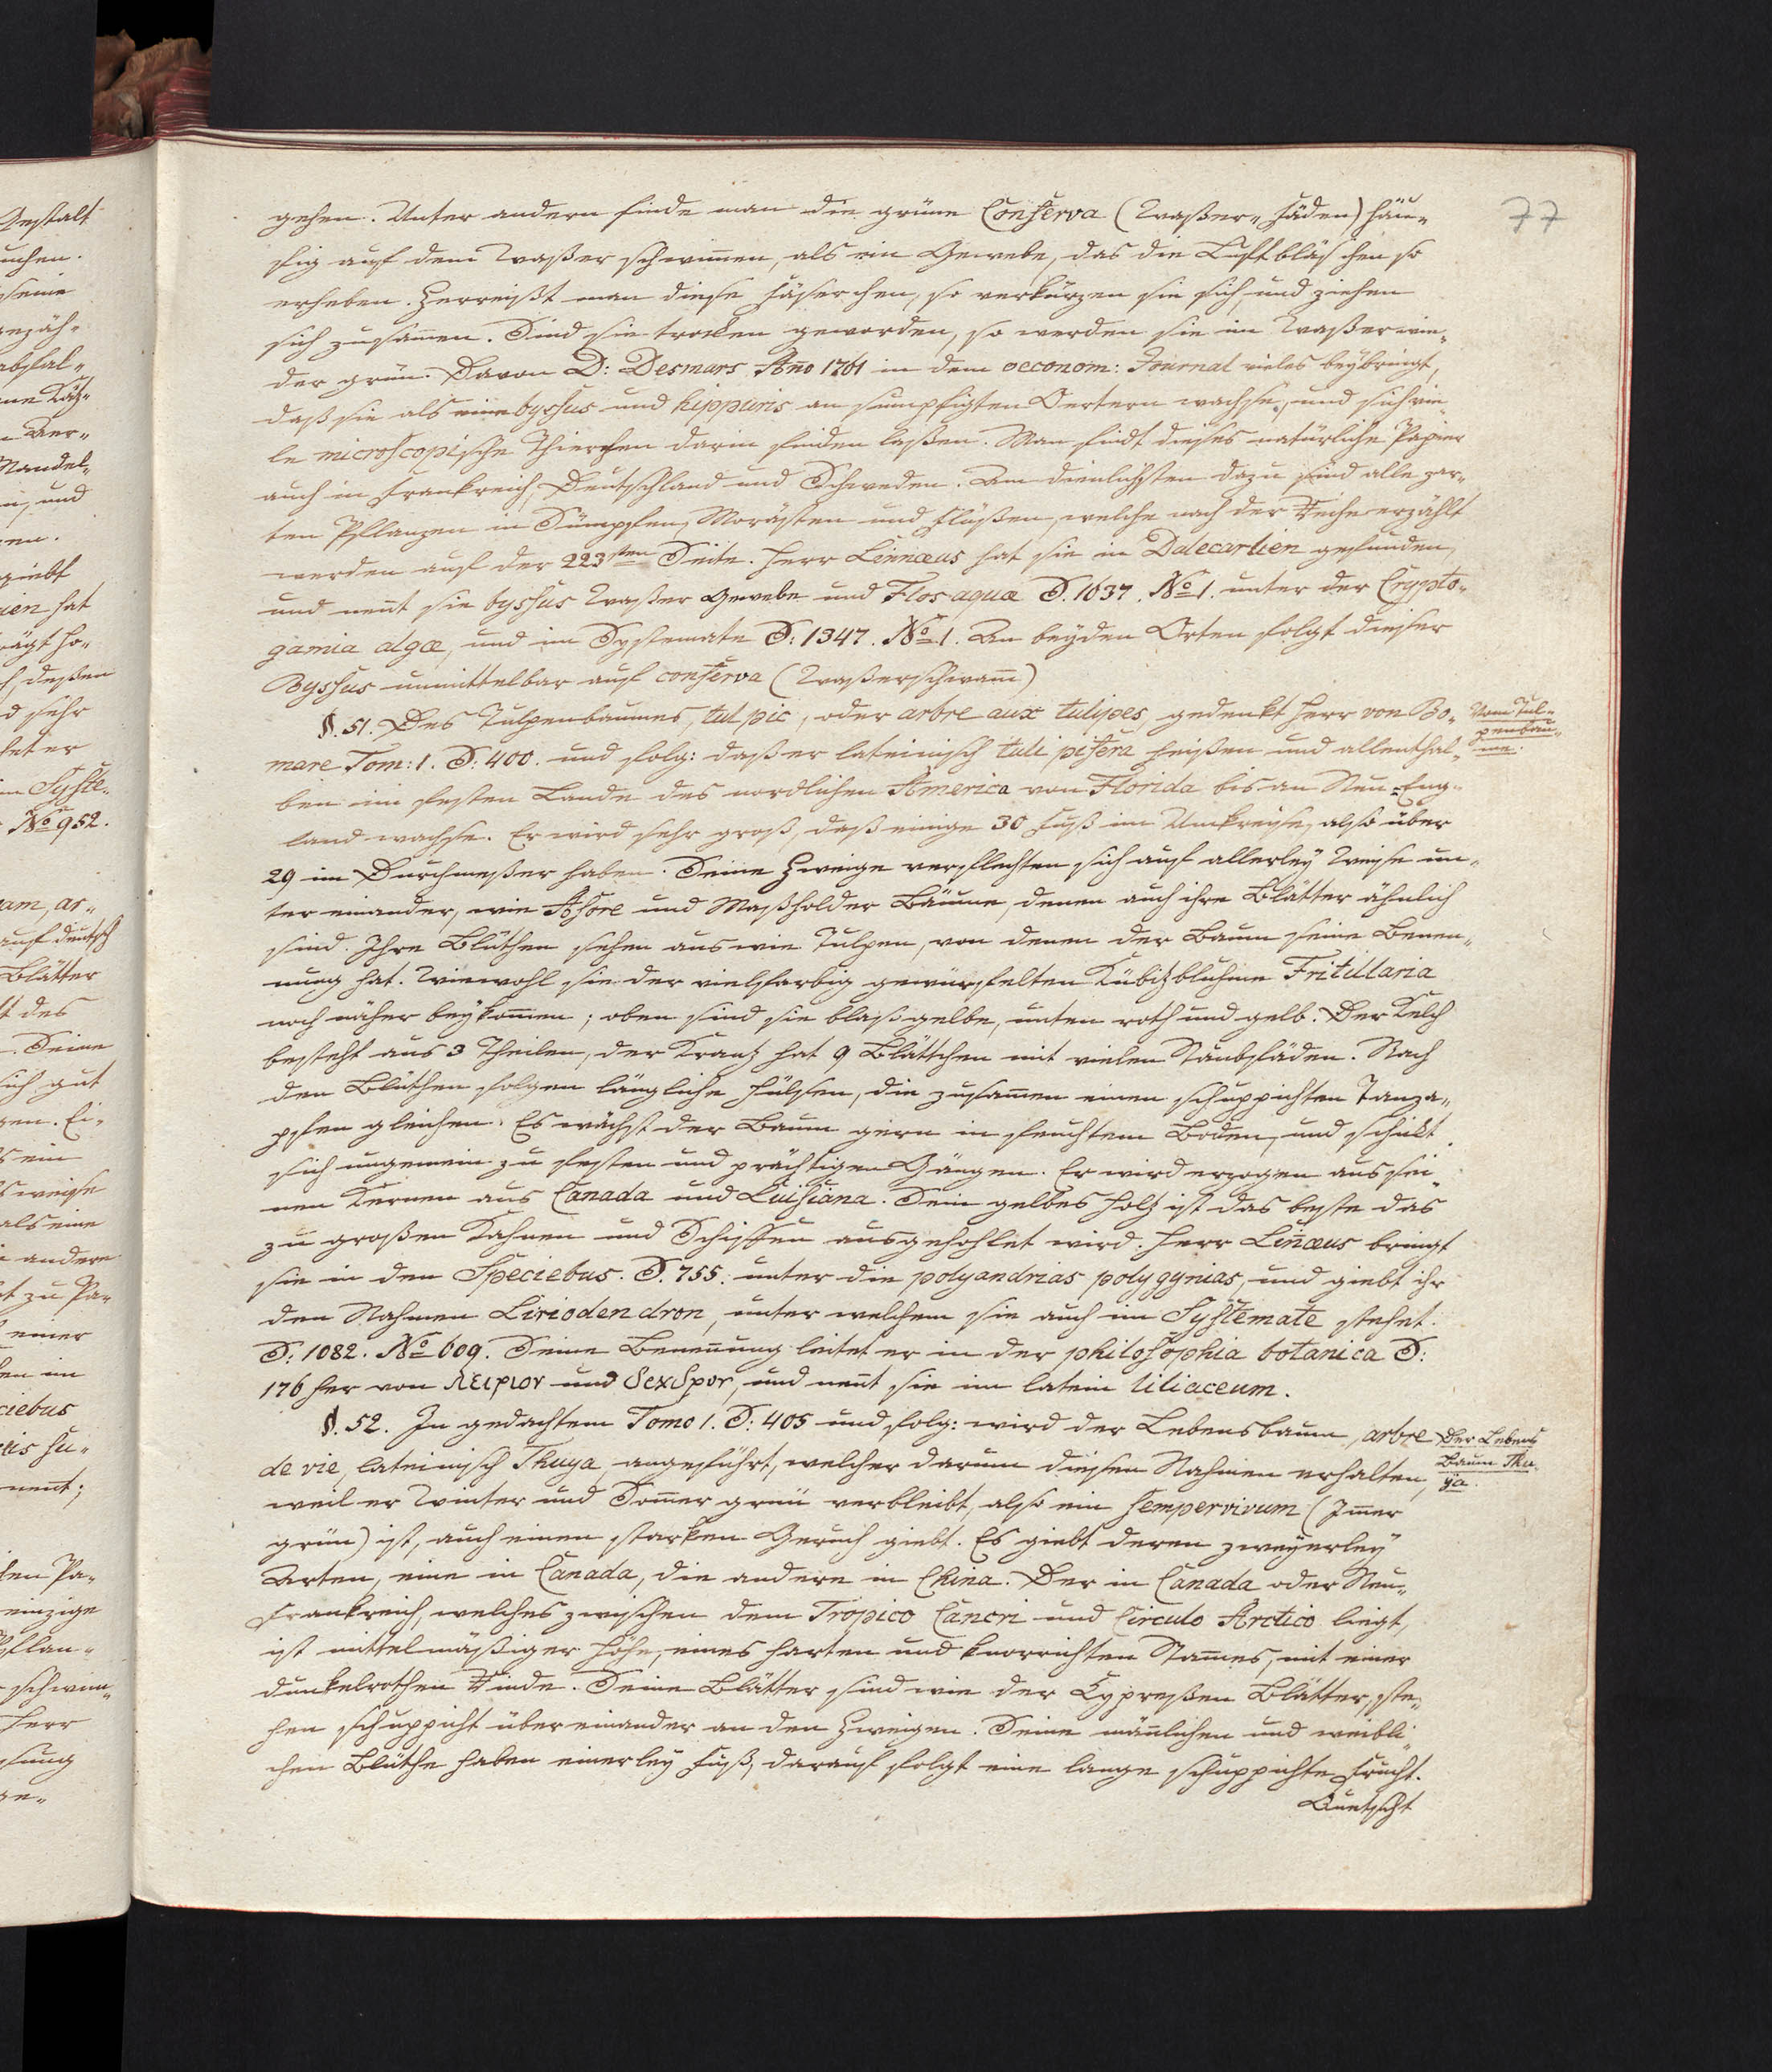 77
gehen. Unter andern finde man die grüne Conferva (Waßer-Fäden) häu-
fig auf dem Waßer schwim̄en, als ein Gewebe, das die Luftbläschen so
erheben. Zerreißt man diese Fäserchen, so verkürzen sie sich und ziehen
sich zusam̄en. Sind sie trocken geworden, so werden sie im Waßer wie-
der grün. Davon D: Desmars Año 1761 in dem oeconom: Journal vieles beybringt,
daß sie als eine byssus und hippuris an sumpfigten Oertern wachse, und sich vie-
le microscopische Thierchen darin finden laßen. Man findt dieses natürliche Papier
auch in Frankreich, Deutschland und Schweden. Am dienlichsten dazu sind alle zar-
ten Pflanzen in Sümpfen, Morästen und Flüßen, welche nach der Reihe erzählt
werden auf der 223sten Seite. Herr Linnæus hat sie in Dalecarlien gefunden,
und nen̄t sie byssus Waßer Gewebe und Flos aquæ S. 1637. No 1. unter der Crypto-
gamia algæ, und im Systemate S: 1347. No 1. An beyden Orten folgt dieser
Byssus unmittelbar auf conferva (Waßerschwam̄)
§. 51. Des Tulpenbaumes, tulpic, oder arbre aux tulipes, gedenkt Herr von Bo-
Vom Tul-
penbau-
me.
mare Tom: 1. S: 400. und folg: daß er lateinisch tulipifera heißen und allenthal-
ben im festen Lande des nordlichen America von Florida bis an Neu-Eng-
land wachse. Er wird sehr groß, daß einige 30 Fuß im Umkreise, also über
29 im Durchmeßer haben. Seine Zweige verflechten sich auf allerley Weise un-
ter einander, wie Ahore und Maßholder Bäume, denen auch ihre Blätter ähnlich
sind. Ihre Blüthen sehen aus wie Tulpen, von denen der Baum seine Benen-
nung hat. Wiewohl sie der vielfarbig gewürfelten Kübitzbluhme Fritillaria
noch näher beykom̄en; oben sind sie blaßgelbe, unten roth und gelb. Der Kelch
besteht aus 3 Theilen, der Krantz hat 9 Blättchen mit vielen Staubfäden. Nach
den Blüthen folgen längliche Hülsen, die zusam̄en einen schuppichten Tanza-
pfen gleichen. Es wächst der Baum gern in feuchtem Boden, und schikt
sich ungemein zu festen und prächtigen Gängen. Er wird erzogen aus sei-
nen Kernen aus Canada und Luisiana. Sein gelbes Holz ist das beste das
zu großen Kahnen und Schiffen ausgehohlet wird. Herr Lin̄æus bringt
sie in den Speciebus. S. 755. unter die polyandrias polygynias, und giebt ihr
den Nahmen Liriodendron, unter welchem sie auch im Systemate stehet.
S: 1082. No 609. Seine Benen̄ung leitet er in der philosophia botanica S:
176 her von λειριον und δεχδρον, und nen̄t sie im latein liliaceum.
§. 52. In gedachtem Tomo 1. S: 405 und folg: wird der Lebensbaum, arbre
Der Lebens
Baum Thu-
ya.
de vie, lateinisch Thuya, angeführt, welcher darum diesen Nahmen erhalten,
weil er Winter und Som̄er grün verbleibt, also ein sempervivum (Im̄er
grün) ist, auch einen starken Geruch giebt. Es giebt deren zweyerley
Arten, eine in Canada, die andere in China. Der in Canada oder Neu-
Frankreich, welches zwischen dem Tropico Cancri und Circulo Arctico liegt,
ist mittelmäßiger Höhe, eines harten und knorrichten Stam̄es, mit einer
dunkelrothen Rinde. Seine Blätter sind wie der Cypreßen Blätter, ste-
hen schuppicht über einander an den Zweigen. Seine män̄lichen und weibli-
chen Blüthe haben einerley Fuß, darauf folgt eine lange schuppichte Frucht.
Quetscht